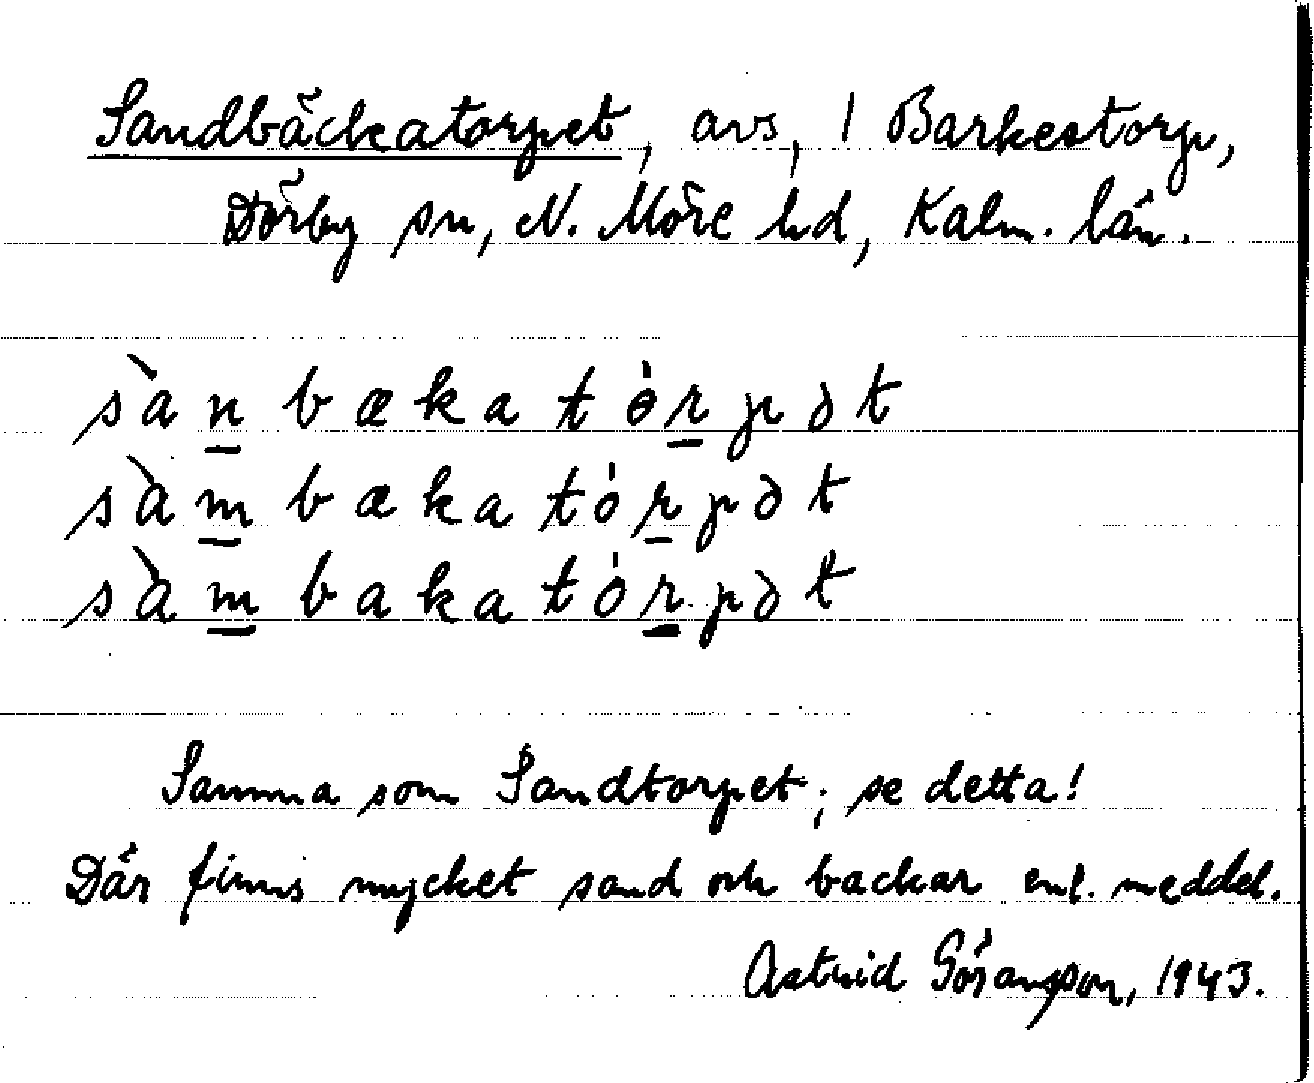 Sandbäckatorpet, avs, 1 Barkestorp,
Dörby sn, N. Möre hd, Kalm. län.
sàn̲bækatòr̲pət
sàm̲bækatór̲pət
sàm̲bakatór̲pət
Samma som Sandtorpet; se detta!
Där finns mycket sand och backar enl. meddel.
Astrid Göransson, 1943.